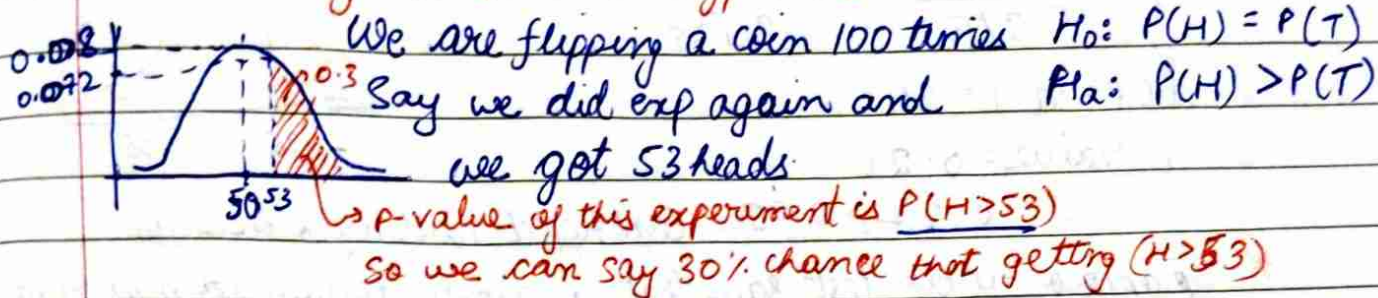 We are flipping a coin 100 times H₀: P(H) = P(T)
0.072
0.3 Say we did exp again and Ha: P(H) > P(T)
we got 53 heads.
50 53
↳ p-value of this experiment is P(H>53)
So we can say 30% chance that getting (H>53)